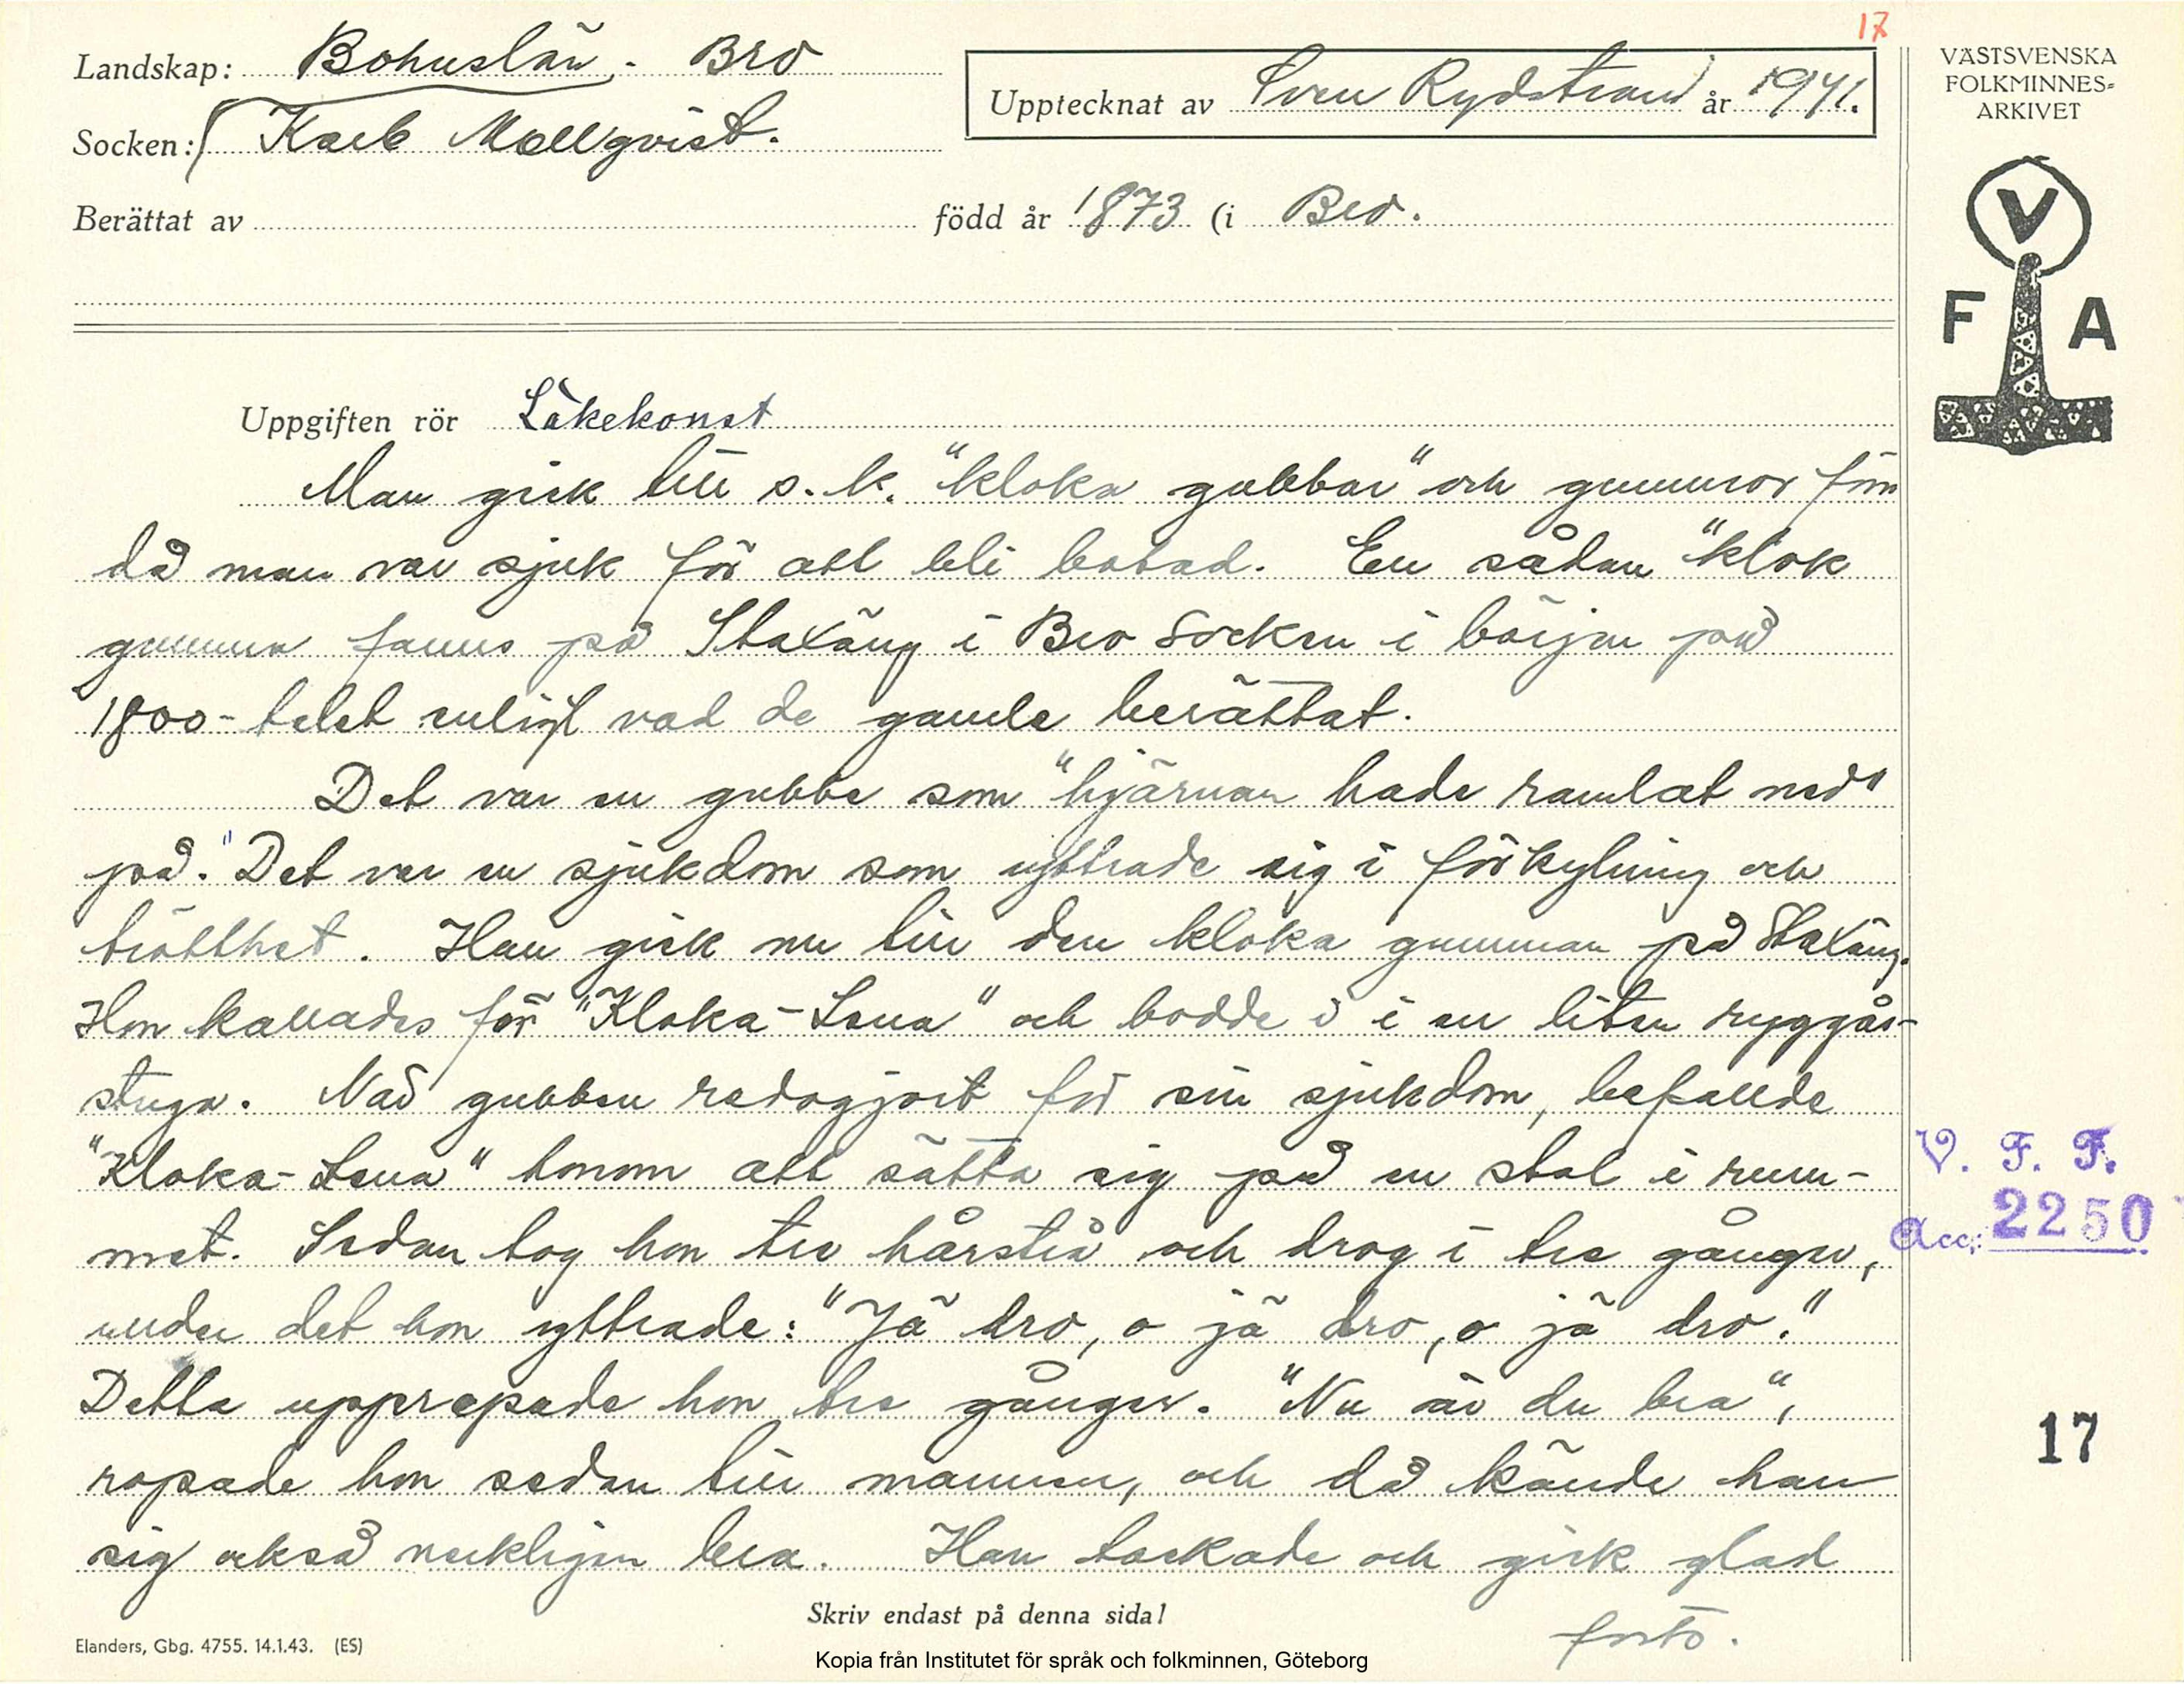 17
Landskap: Bohuslän. Bro
Upptecknat av Sven Rydstrand år 1941.
VÄSTSVENSKA
FOLKMINNES-
ARKIVET
Socken: Karl Mollqvist.
Berättat av född år 1873 (i Bro.
V
F A
Uppgiften rör Läkekonst
Man gick till s.k. "kloka gubbar" och gummor förr
då man var sjuk för att bli botad. En sådan "klok
gumma fanns på Staxäng i Bro socken i början på
1800-talet enligt vad de gamla berättat.
Det var en gubbe som "hjärnan hade ramlat ned"
på." Det var en sjukdom som yttrade sig i förkylning och
trötthet. Han gick nu till den kloka gumman på Staxäng.
Hon kallades för "Kloka-Lena" och bodde i i en liten ryggås-
stuga. När gubben redogjort för sin sjukdom, befallde
"Kloka-Lena" honom att sätta sig på en stol i rum-
met. Sedan tog hon tre hårstrå och drog i tre gånger,
under det hon yttrade: "Jä dro, o jä dro, o jä dro."
Detta upprepade hon tre gånger. "Nu är du bra",
ropade hon sedan till mannen, och då kände han
sig också verkligen bra. Han tackade och gick glad
V. F. F.
Acc: 2250
17
Skriv endast på denna sida!
forts.
Elanders, Gbg. 4755. 14.1.43. (ES)
Kopia från Institutet för språk och folkminnen, Göteborg